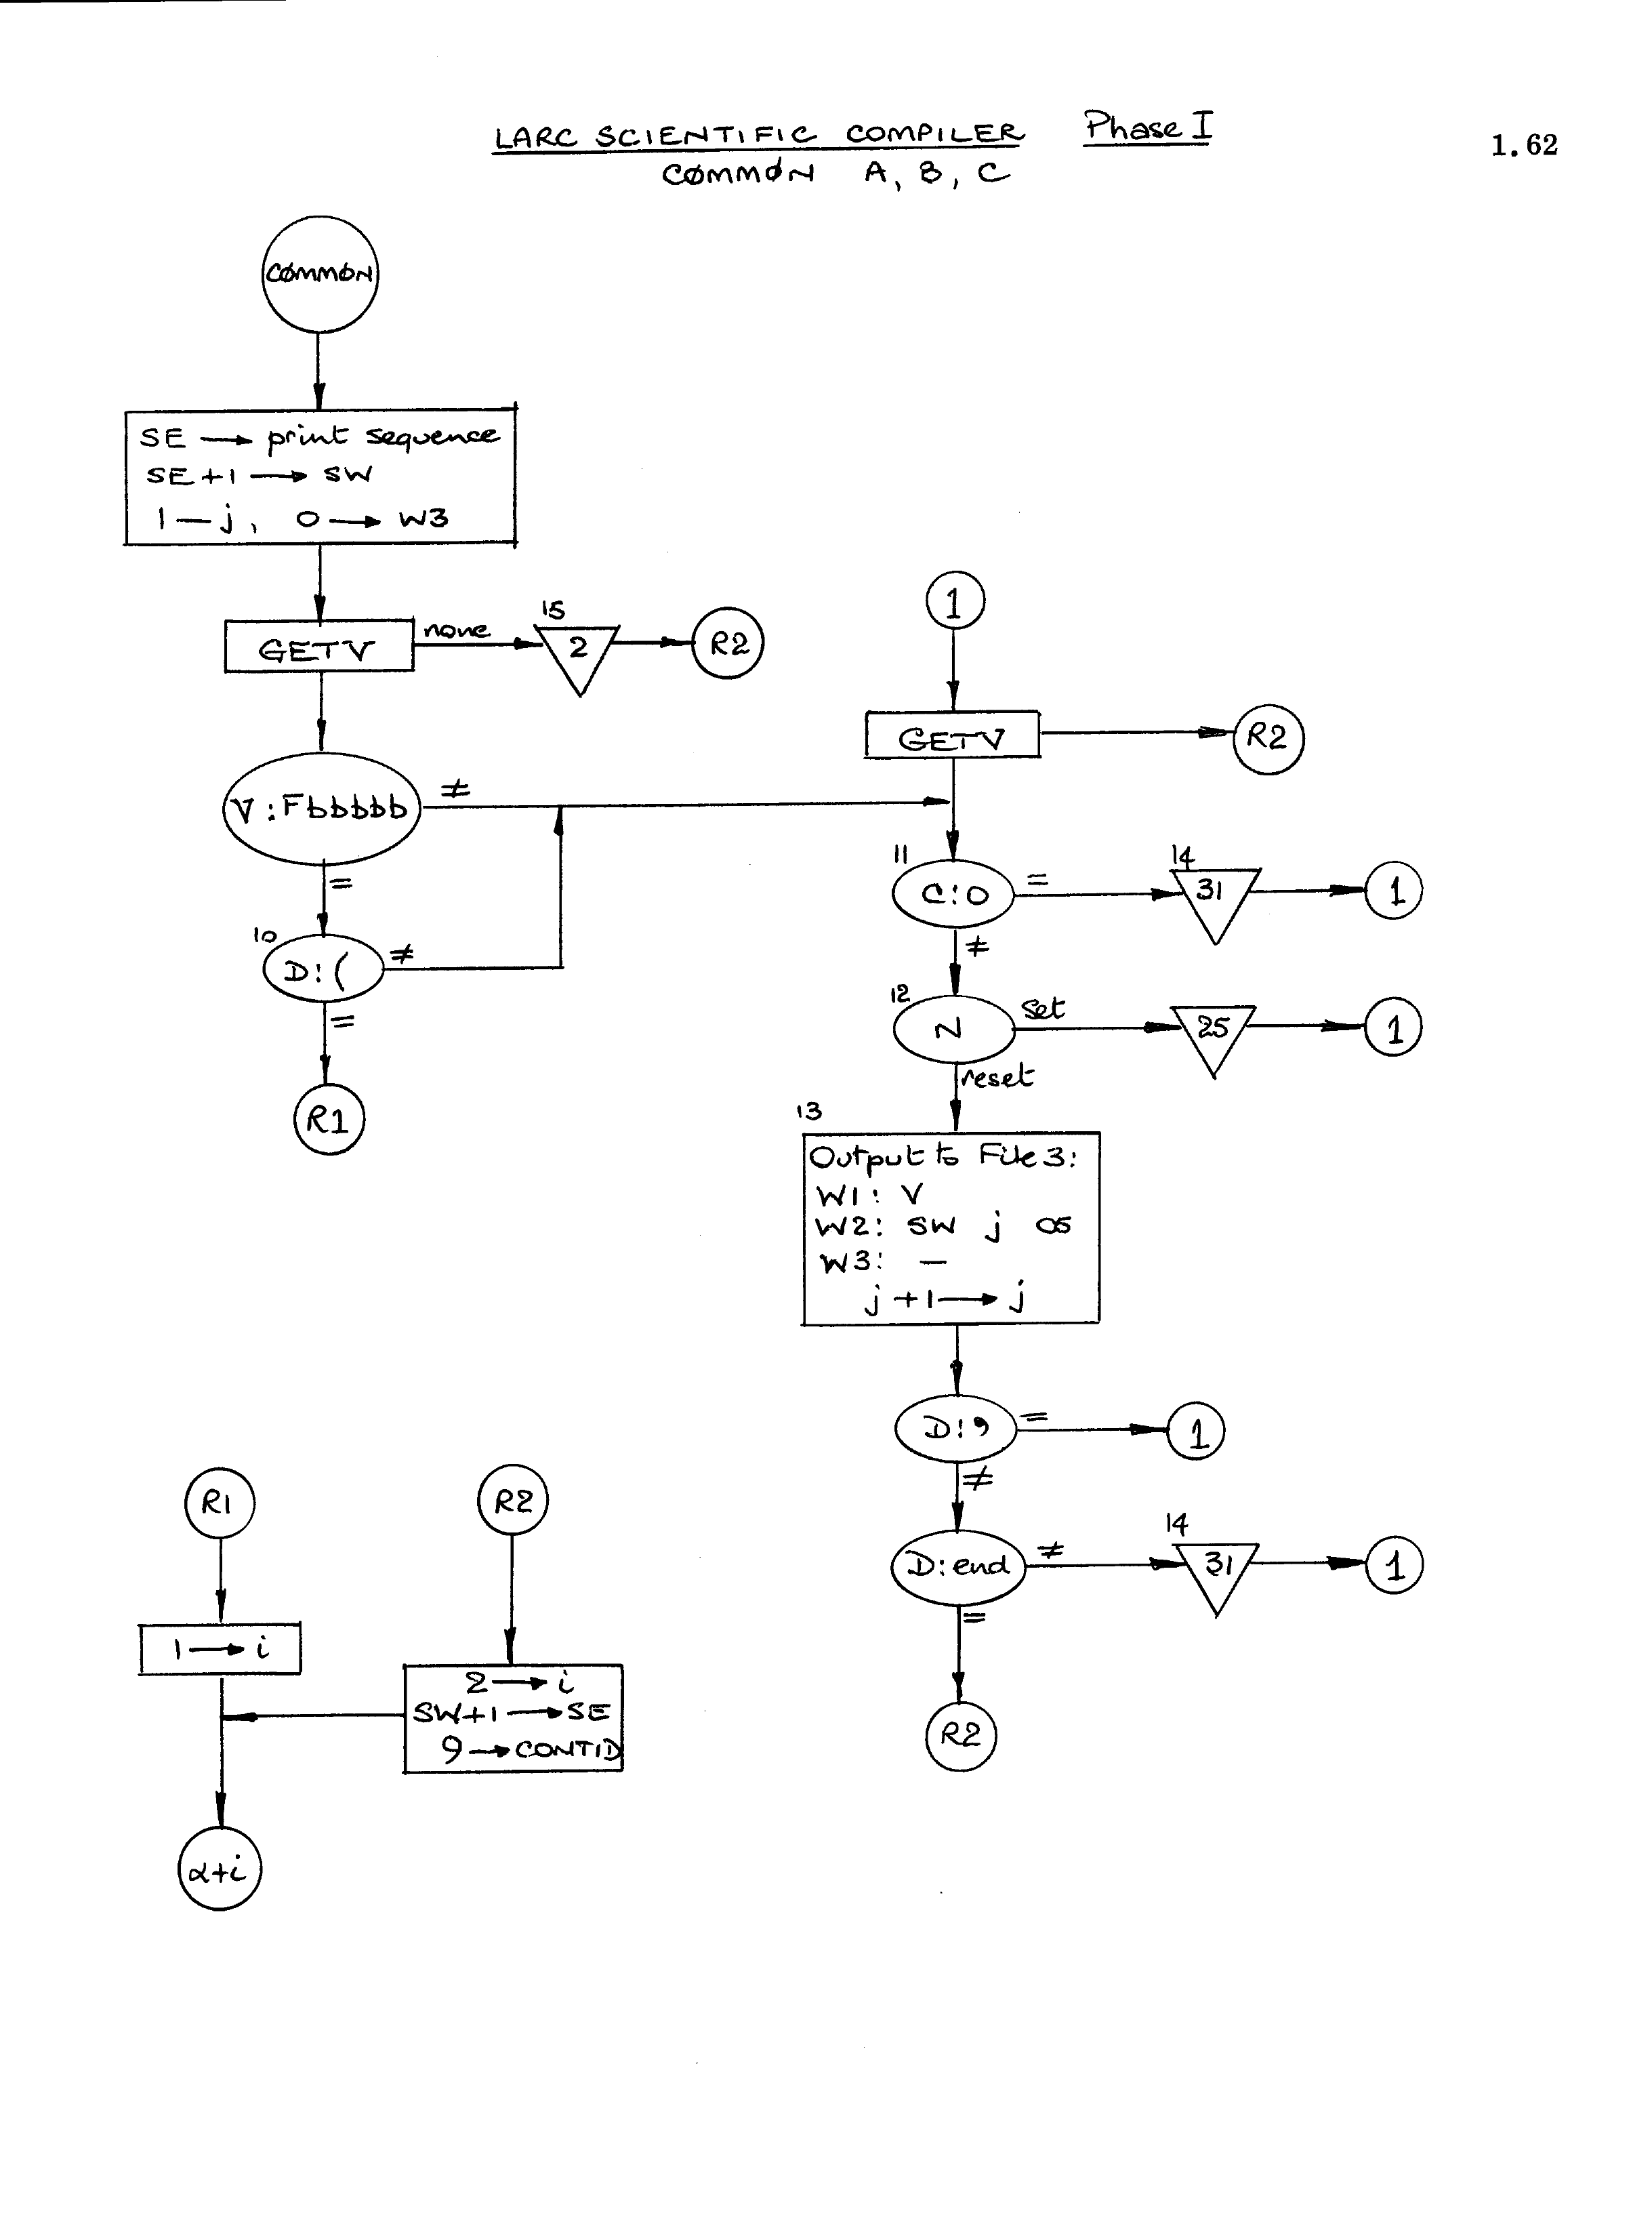 LARC SCIENTIFIC COMPILER Phase I
1.62
CØMMØN A, B, C
CØMMØN
SE → print sequence
SE+1 → SW
1 — j, 0 → W3
GETV
none
15
2
R2
V:Fbbbbb
≠
=
10
D:(
≠
=
R1
1
GETV
R2
11
C:0
=
14
31
1
≠
12
N
set
25
1
reset
13
Output to File 3:
W1: V
W2: SW j 05
W3: —
j+1 → j
D:,
=
1
≠
D:end
≠
14
31
1
=
R2
R1
1 → i
R2
2 → i
SW+1 → SE
9 → CONTID
α+i